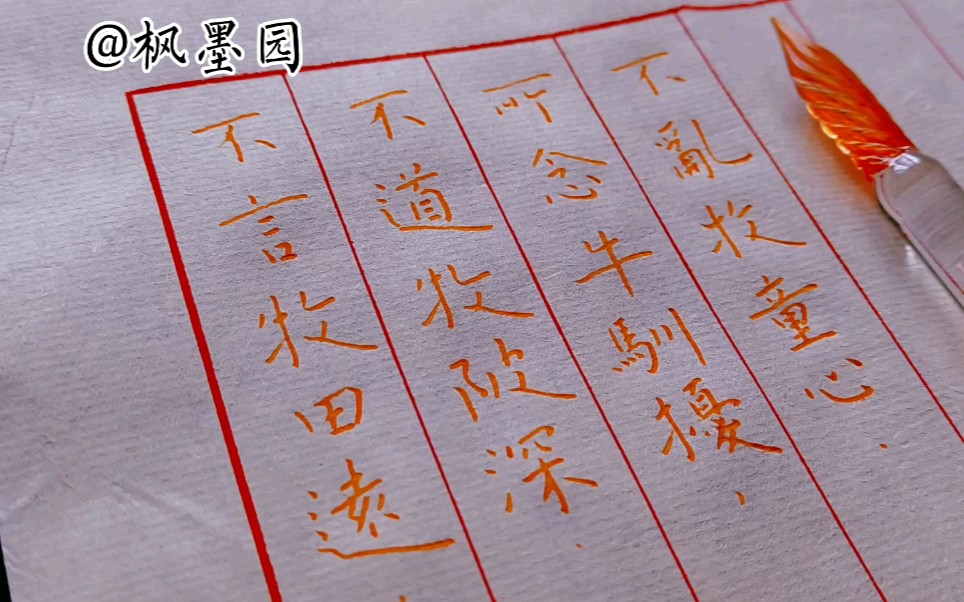 @枫墨园
不言牧田遠、
不道牧陂深.
所念牛馴擾、
不亂牧童心.